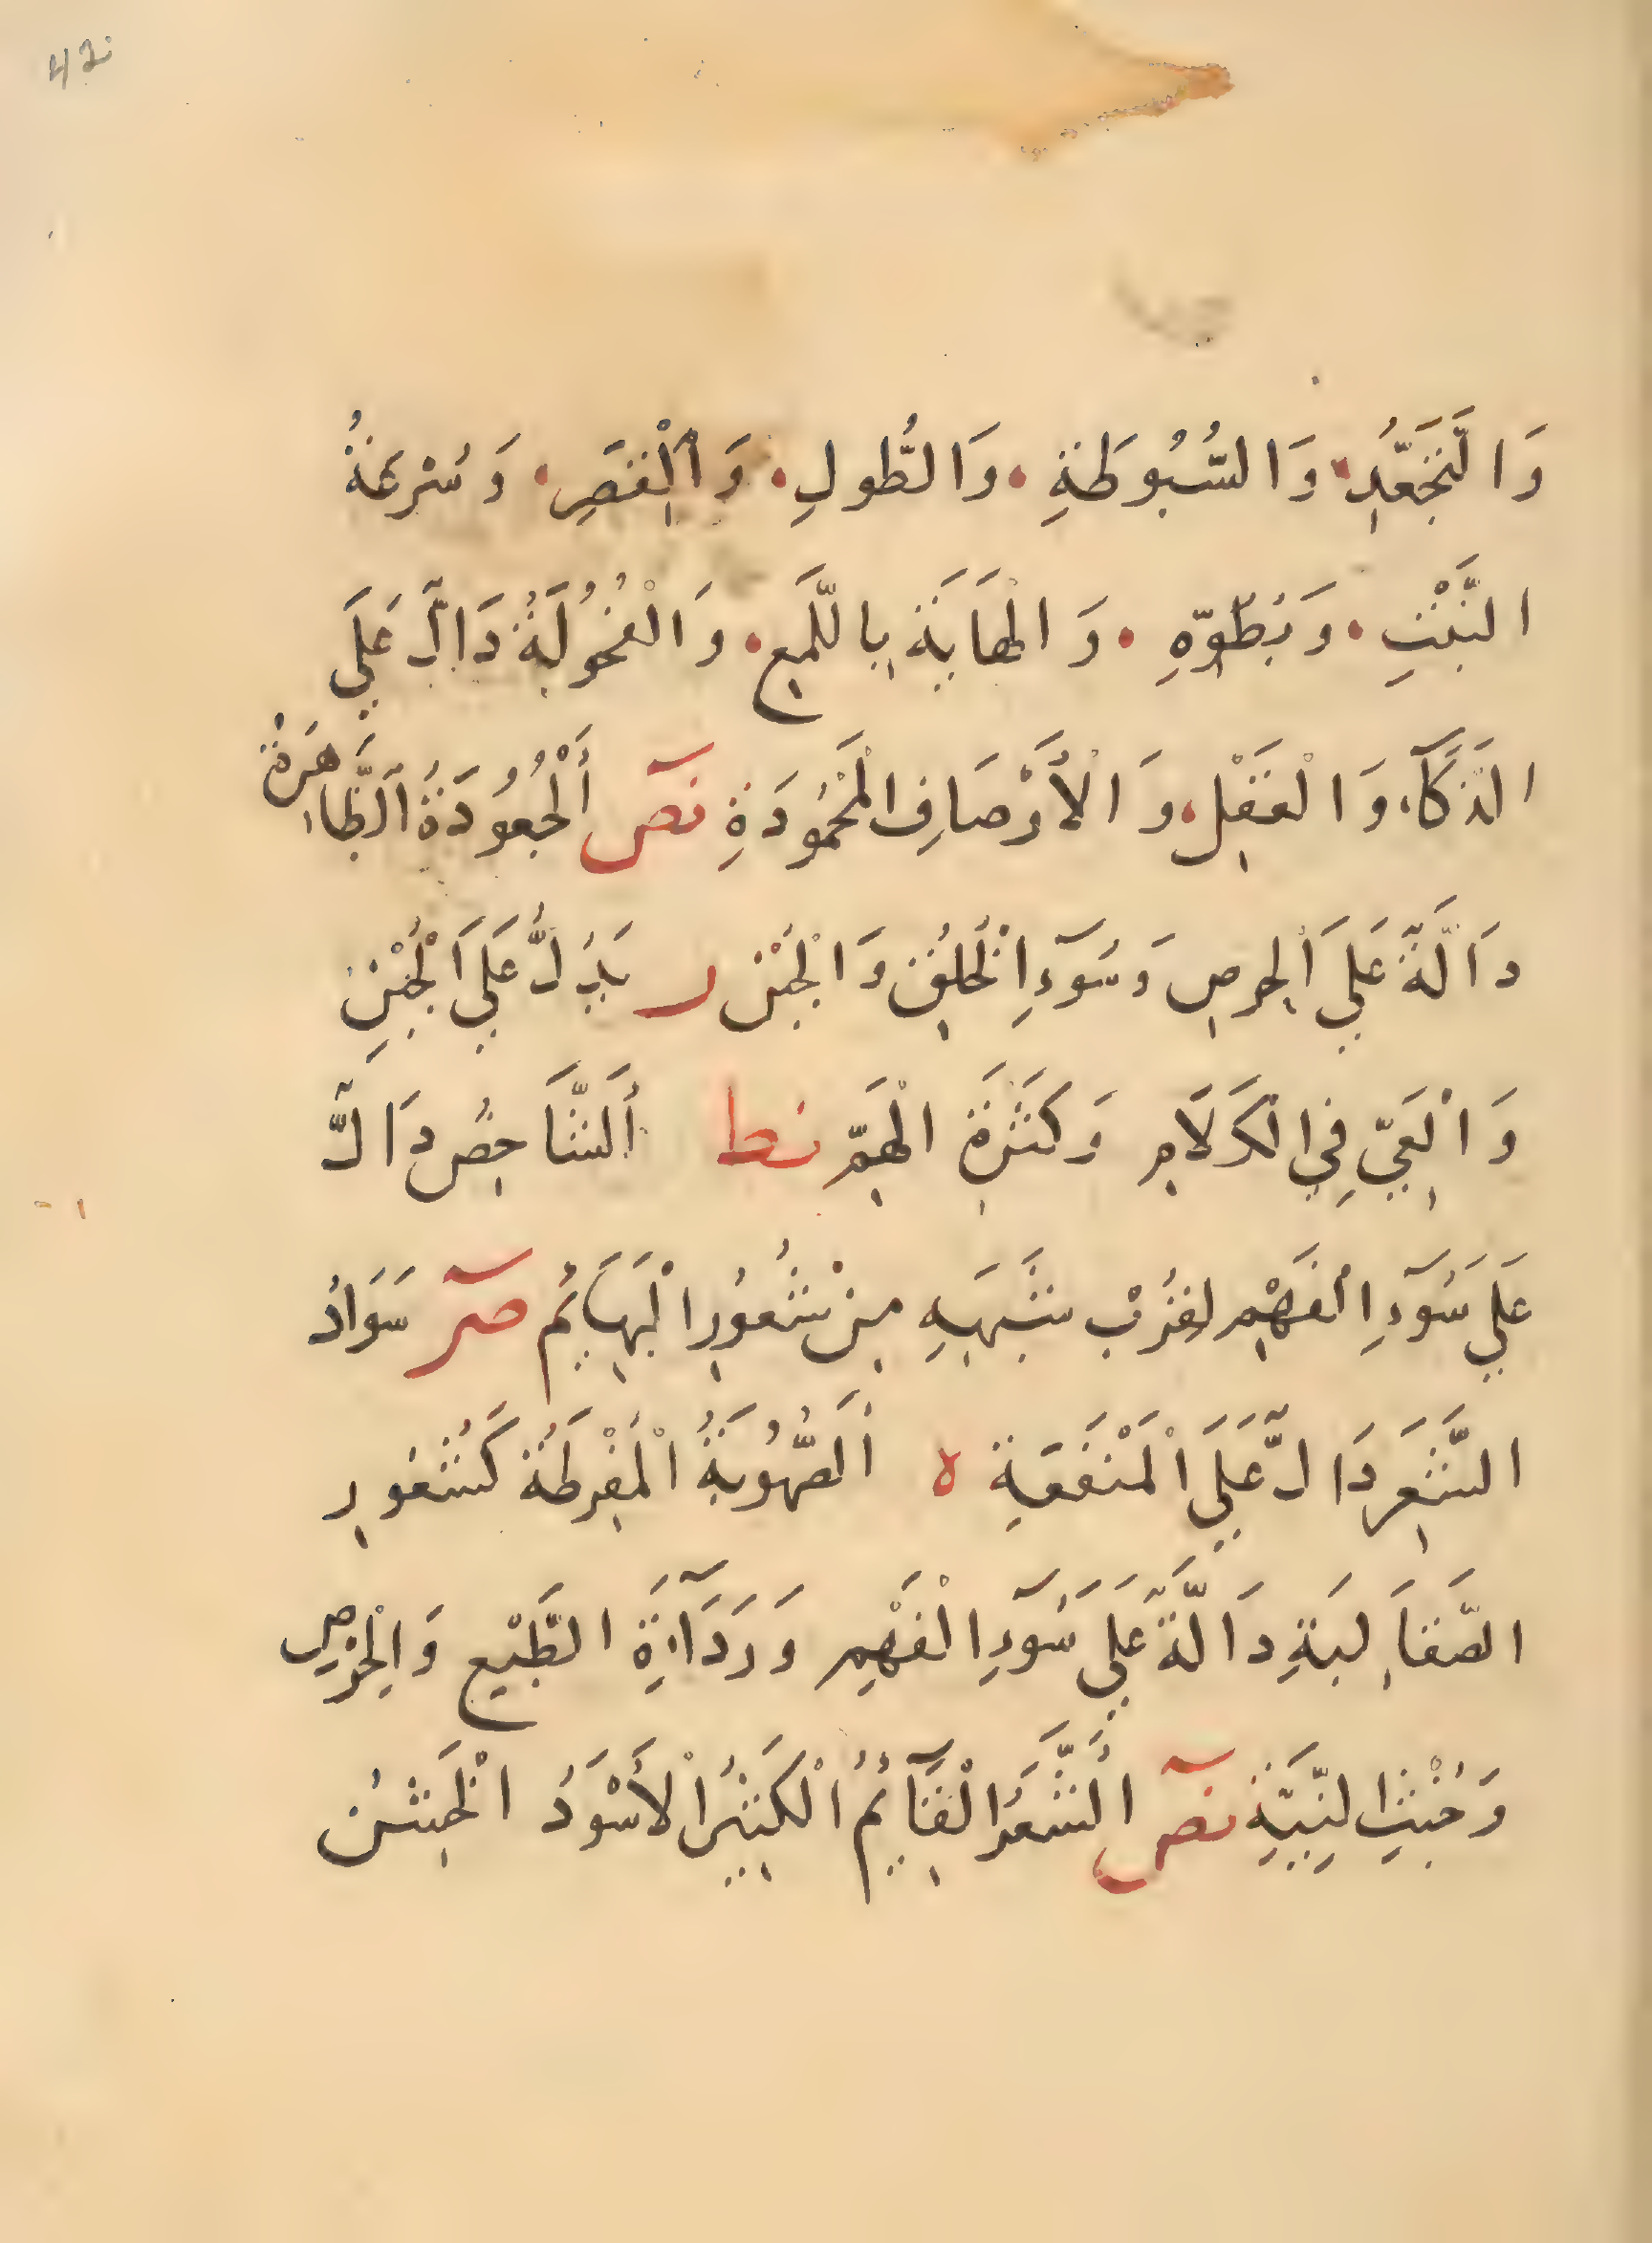 42
وَالتَّجَعُّدِ. وَالسُّبُوطَةِ. وَالطُّولِ. وَالْقِصَرِ. وَسُرْعَةُ
النَّبْتِ. وَبُطُوِّهِ. وَالْهَابَةَ بِاللَّمَعِ. وَالْفُحُولَةُ دَالٌّ عَلَي
الذَّكَآءِ وَالْعَقْلِ. وَالْأَوْصَافِ الْمَحْمُودَةِ نص أَلْجُعُودَةُ الظَّاهِرَةُ
دَالَّةٌ عَلَي الْحِرصِ وَسُوٓءِ الْخُلُقِ وَالْجُبْنِ ر يَدُلُّ عَلَي الْجُبْنِ
وَالْعَيِّ فِي الْكَلَامِ وَكَثْرَةِ الْهَمِّ نط أَلشَّاخِصُ دَالٌّ
عَلَي سُوٓءِ الْفَهْمِ لِقُرْبِ شَبَهِهِ مِنْ شُعُورِ الْبَهَائِمُ صر سَوَادُ
الشَّعَرِ دَالٌّ عَلَي الْمَنْفَعَةِ ه أَلصُّهُوبَةُ الْمُفْرِطَةُ كَشُعُورِ
الصَّقَالِبَةِ دَالَّةٌ عَلَي سُوٓءِ الْفَهْمِ وَرَدَآئَةِ الطَّبْعِ وَالْحِرْصِ
وَخُبْثِ النِّيَّةِ نص الشَّعَرُ الْقَآئِمُ الْكَثِيرُ الْأَسْوَدُ الْخَشِنُ